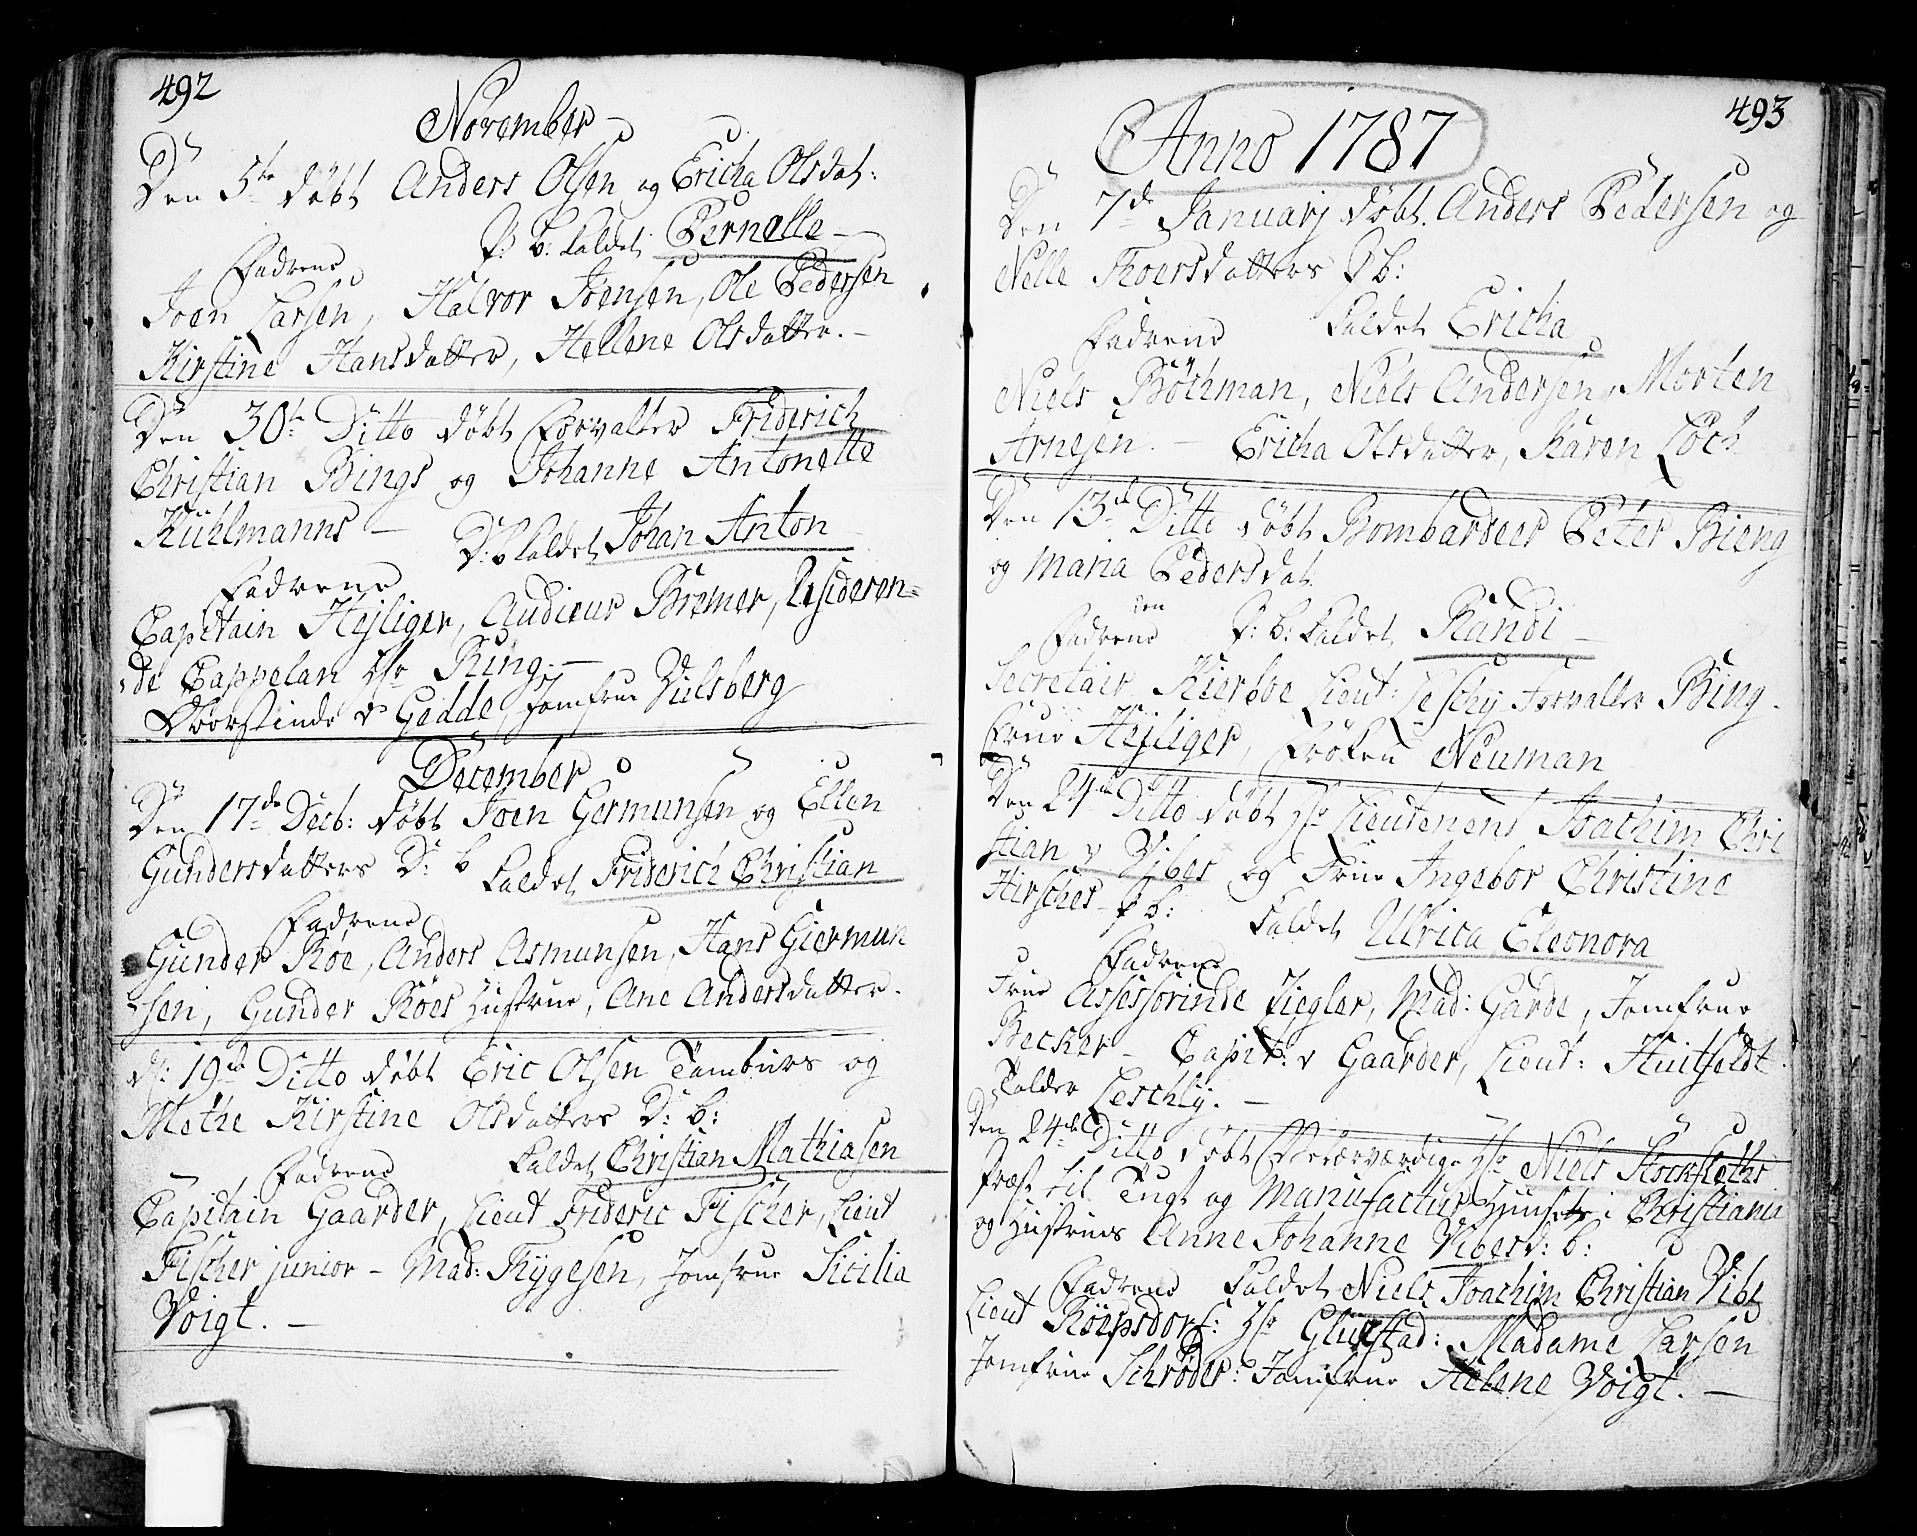 492
November
Den 5te döbt Anders Olsen og Ericha Olsdat:
P: b: kaldet Pernelle
Fadrene
Joen Larsen, Halvor Joensen, Ole Pedersen
Kirstine Hansdatter, Hellene Olsdatter. –
Den 30te Ditto döbt Forvalter Friderich
Christian Bings og Johanne Antonette
Kühlmanns – D: b kaldet Johan Anton
Fadrene
Capitain Hejliger, Audieur Bremer, Resideren=
de Cappelan Hr Ring. –
Oborstinde v Gedde, Jomfrue Vulsberg
December
Den 17de Decb: döbt Joen Germunsen og Ellen
Gundersdatters D: b kaldet Friderich Christian
Fadrene
Gunder Röe, Anders Asmunsen, Hans Giermun
=sen, Gunder Röes Hustrue, Ane Andersdatter.
D: 19de Ditto döbt Eric Olsen Tamburs og
Methe Kirstine Olsdatters D: b:
Fadrene kaldet Christian Mathiasen
Capitain Gaarder, Lieut Frideric Fischer, Lieut
Fischer junior – Mad: Thygesen, Jomfrue Sicilia
Voigt. –
493
Anno 1787
Den 7de Januarj döbt Anders Pedersen og
Nelle Thoersdatters P b:
Fadrene kaldet Ericha
Niels Böchman, Niels Andersen, Morten
Arnesen. – Ericha Olsdatter, Karen Loch
Den 13de Ditto döbt Bombardeer Peter Bieng
og Maria Pedersdat
Fadrene P: b: kaldet Randi –
Secretair Kierboe Lieut: Leschly Forvalter Bing
Frue Hejliger, Fröken Neuman
Den 24de Ditto döbt Hr Lieutenent Joachim Chri
stian v Vibes og Frue Ingebor Christine
Hirsches P b: kaldet Ulrica Eleonora
Fadrene
Frue Assessorinde Ziegler, Mad: Garde, Jomfrue
Becker – Capit: v Gaarder, Lieut: Huitfeldt
Leschly. –
Den 24de Ditto döbt Velærværdige Hr Niels Stockfleths
Præst til Tugt og Manufactur Huuset i Christiania
og Hustrues Anne Johanne Vibes D: b:
Fadrene kaldet Niels Joachim Christian Vibe
Lieut Röepsdorf: Hr Glückstad: Madame Larsen
Jomfrue Schröder: Jomfrue Helene Voigt. –